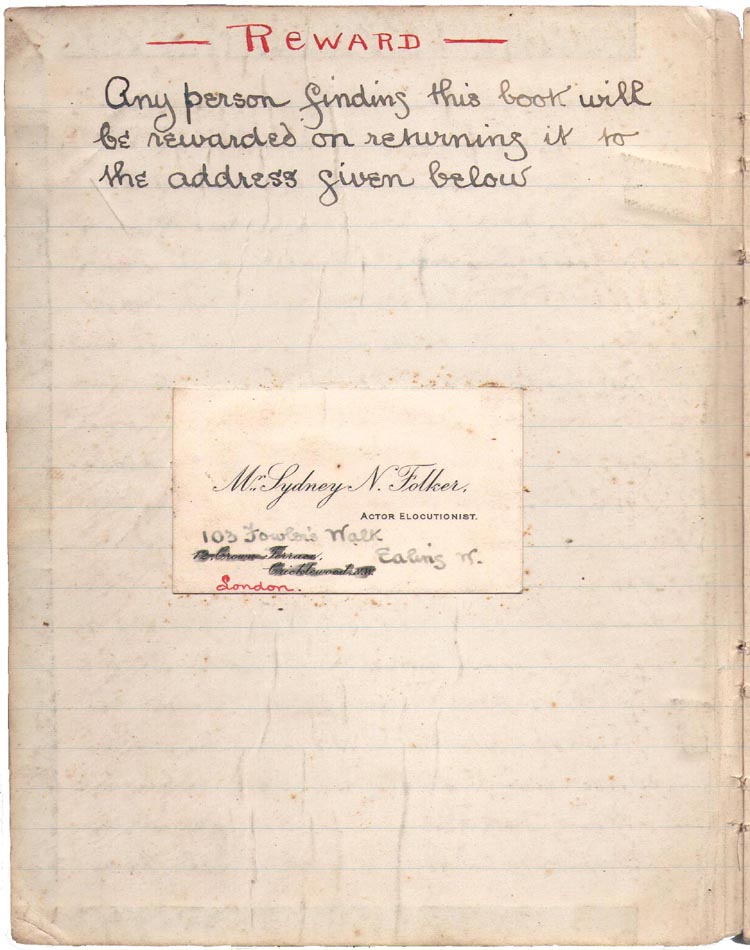 — REWARD —
Any person finding this book will
be rewarded on returning it to
the address given below
Mr. Sydney N. Folker,
ACTOR ELOCUTIONIST.
103 Fowler's Walk
Crown Terrace, Ealing W.
Cricklewood. N.W.
London.